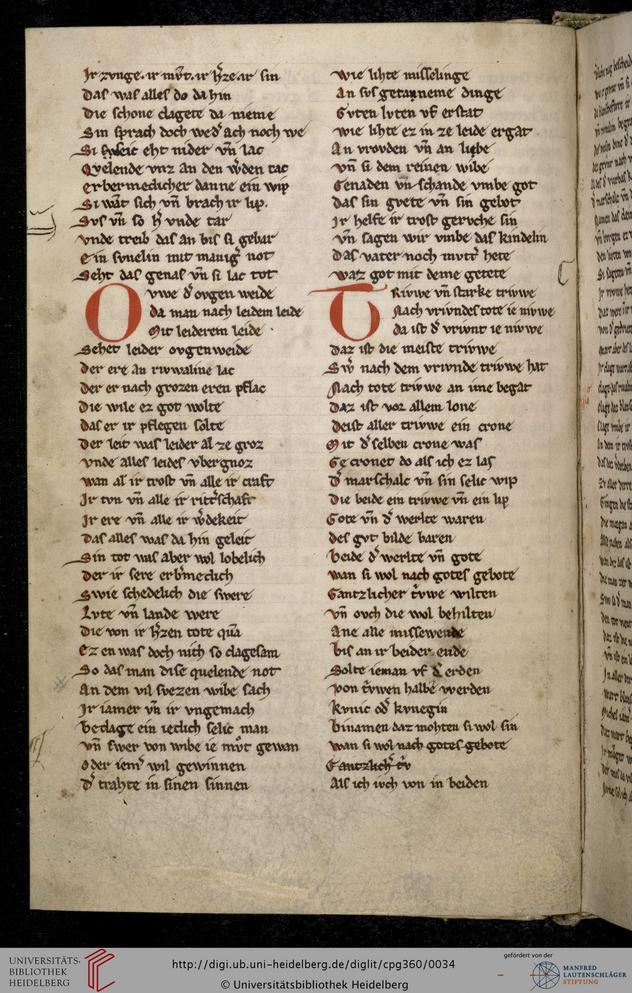 Ir zvnge. ir mv̊t. ir h̄ze ir sin
Das was alles do da hin
Die schone clagete da nieme
Sin sprach doch wed̄ ach noch we
Si eht nider vn̄ lac
Qvelende vnz an den v̓den tac
Erbermeclicher danne ein wip
Si wāt sich vn̄ brach ir lip.
Svs vn̄ so h̄ vnde tar
vnde treib das an bis si gebar
Ein svnelin mit manig̓ not
Seht das genas vn̄ si lac tot
Ovwe d̓ ovgen weide
da man nach leidem leide
Mit leiderem leide
Sehet leider ovgenweide
Der ere an rivwaline lac
Der er nach grozen eren pflac
Die wile ez got wolte
das er ir pflegen solte
Der leit was leider al ze groz
vnde alles leides vbergnoz
wan al ir trost vn̄ alle ir craft
Ir tvn vn̄ alle ir ritt̓schaft
Ir ere vn̄ alle ir w̓dekeit
Das alles was da hin geleit
Sin tot was aber wol lobelich
Der ir sere erb̓meclich
Swie schedelich die swere
Lvte vn̄ lande were
Die von ir h̄zen tote q̄a
Ez en was doch niht so clagesam
So das man dise quelende not
An dem vil svezen wibe sach
Ir iamer vn̄ ir vngemach
Beclage ein ieclich selic man
vn̄ swer von wibe ie mv̊t gewan
Oder iem̄ wil gewinnen
D̓ trahte in sinen sinnen
Wie lihte misselinge
An svs getanneme dinge
Gvten lvten vf erstat
wie lihte ez in ze leide ergat
An vrovden vn̄ an liebe
vn̄ si dem reinen wibe
Genaden vn̄ schande vmbe got
das sin gvete vn̄ sin gebot
Ir helfe ir trost gervche sin
vn̄ sagen wir vmbe das kindelin
das vater noch mvtt̓ hete
waz got mit deme getete
Trivwe vn̄ starke trivwe
Nach vrivndes tote ie nivwe
da ist d̓ vrivnt ie nivwe
Daz ist die meiste trivwe
Sw̓ nach dem vrivnde trivwe hat
Nach tote trivwe an ime begat
Daz ist vor allem lone
Deist aller trivwe ein crone
Mit d̓ selben crone was
Gecronet do als ich ez las
D̓ marschalc vn̄ sin selic wip
Die beide ein trivwe vn̄ ein lip
Gote vn̄ d̓ werlte waren
Des gvt bilde baren
Beide d̓ werlte vn̄ gote
wan si wol nach gotes gebote
Gantzlicher tvwe wilten
vn̄ ovch die wol behilten
Ane alle missewende
bis an ir beider ende
Solte ieman vf erden
von tvwen halbe werden
Kvnic od̓ kvnegin
binamen daz mohten si wol sin
wan si wol nach gotes gebote
Gantzlich̓ tv
Als ich ivch von in beiden
UNIVERSITÄTS-
BIBLIOTHEK
HEIDELBERG
http://digi.ub.uni-heidelberg.de/diglit/cpg360/0034
© Universitätsbibliothek Heidelberg
gefördert von der
MANFRED
LAUTENSCHLÄGER
STIFTUNG